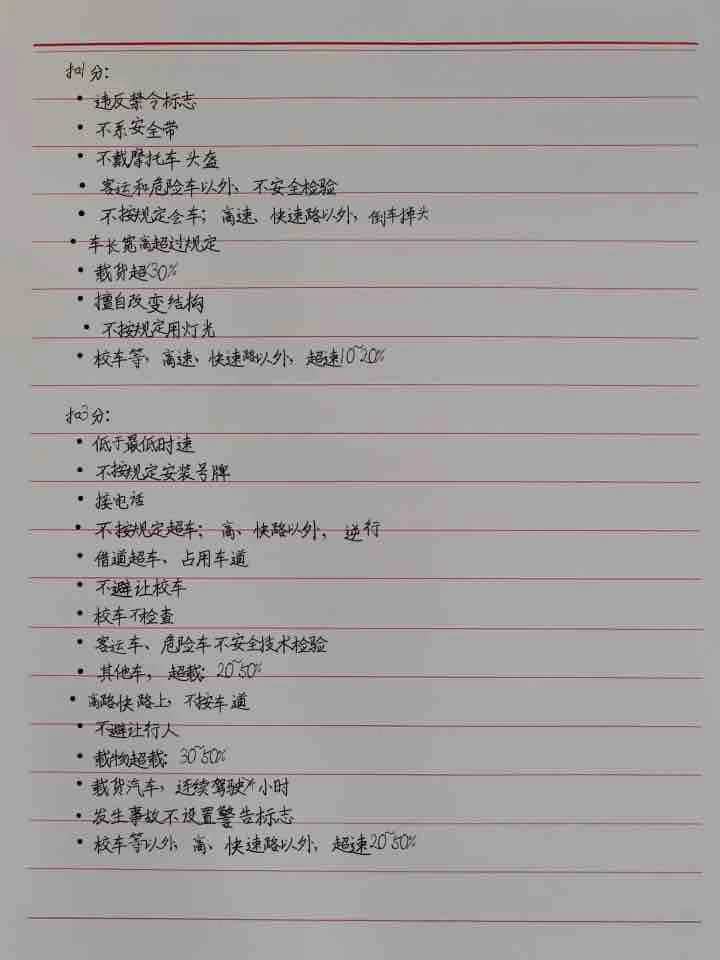 扣1分：
• 违反禁令标志
• 不系安全带
• 不戴摩托车头盔
• 客运和危险车以外，不安全检验
• 不按规定会车；高速、快速路以外，倒车掉头
• 车长宽高超过规定
• 载货超30%
• 擅自改变结构
• 不按规定用灯光
• 校车等，高速、快速路以外，超速10~20%
扣3分：
• 低于最低时速
• 不按规定安装号牌
• 接电话
• 不按规定超车；高、快路以外，逆行
• 借道超车、占用车道
• 不避让校车
• 校车不检查
• 客运车、危险车不安全技术检验
• 其他车，超载：20~50%
• 高路快路上，不按车道
• 不避让行人
• 载物超载：30~50%
• 载货汽车，连续驾驶 小时
• 发生事故不设置警告标志
• 校车等以外，高、快速路以外，超速20~50%